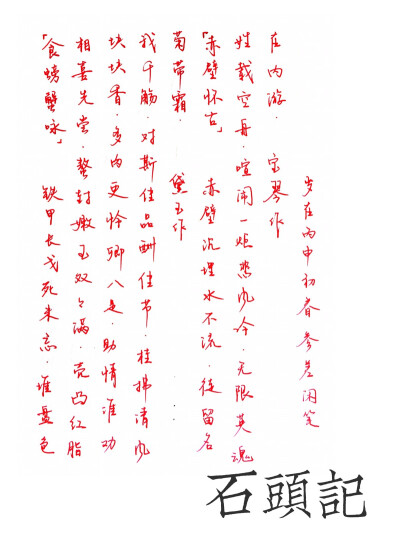 「食螃蟹咏」 铁甲长戈死未忘.堆盘色
相喜先尝.螯封嫩玉双々满.壳凸红脂
块块香.多肉更怜卿八足.助情谁劝
我千觞.对斯佳品酬佳节.桂拂清风
菊带霜. 黛玉作
「赤壁怀古」 赤壁沉埋水不流.徒留名
姓载空舟.喧闹一炬悲风冷.无限英魂
在内游. 宝琴作
岁在丙申初春参差闲笔
石頭記